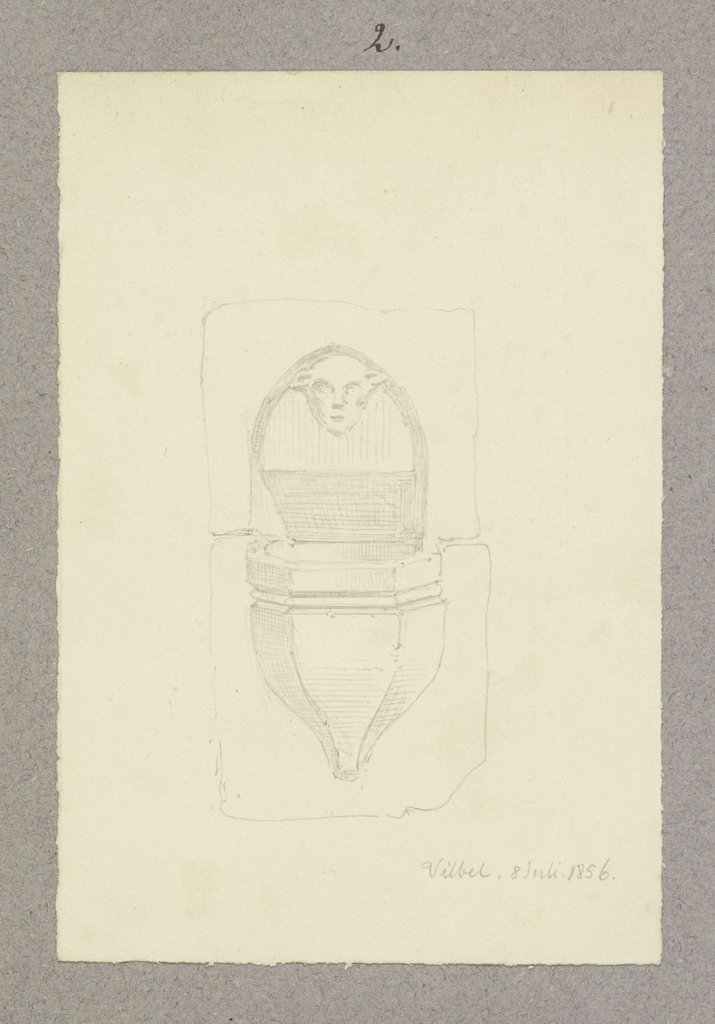 2.
Vilbel. 8 Juli. 1856.